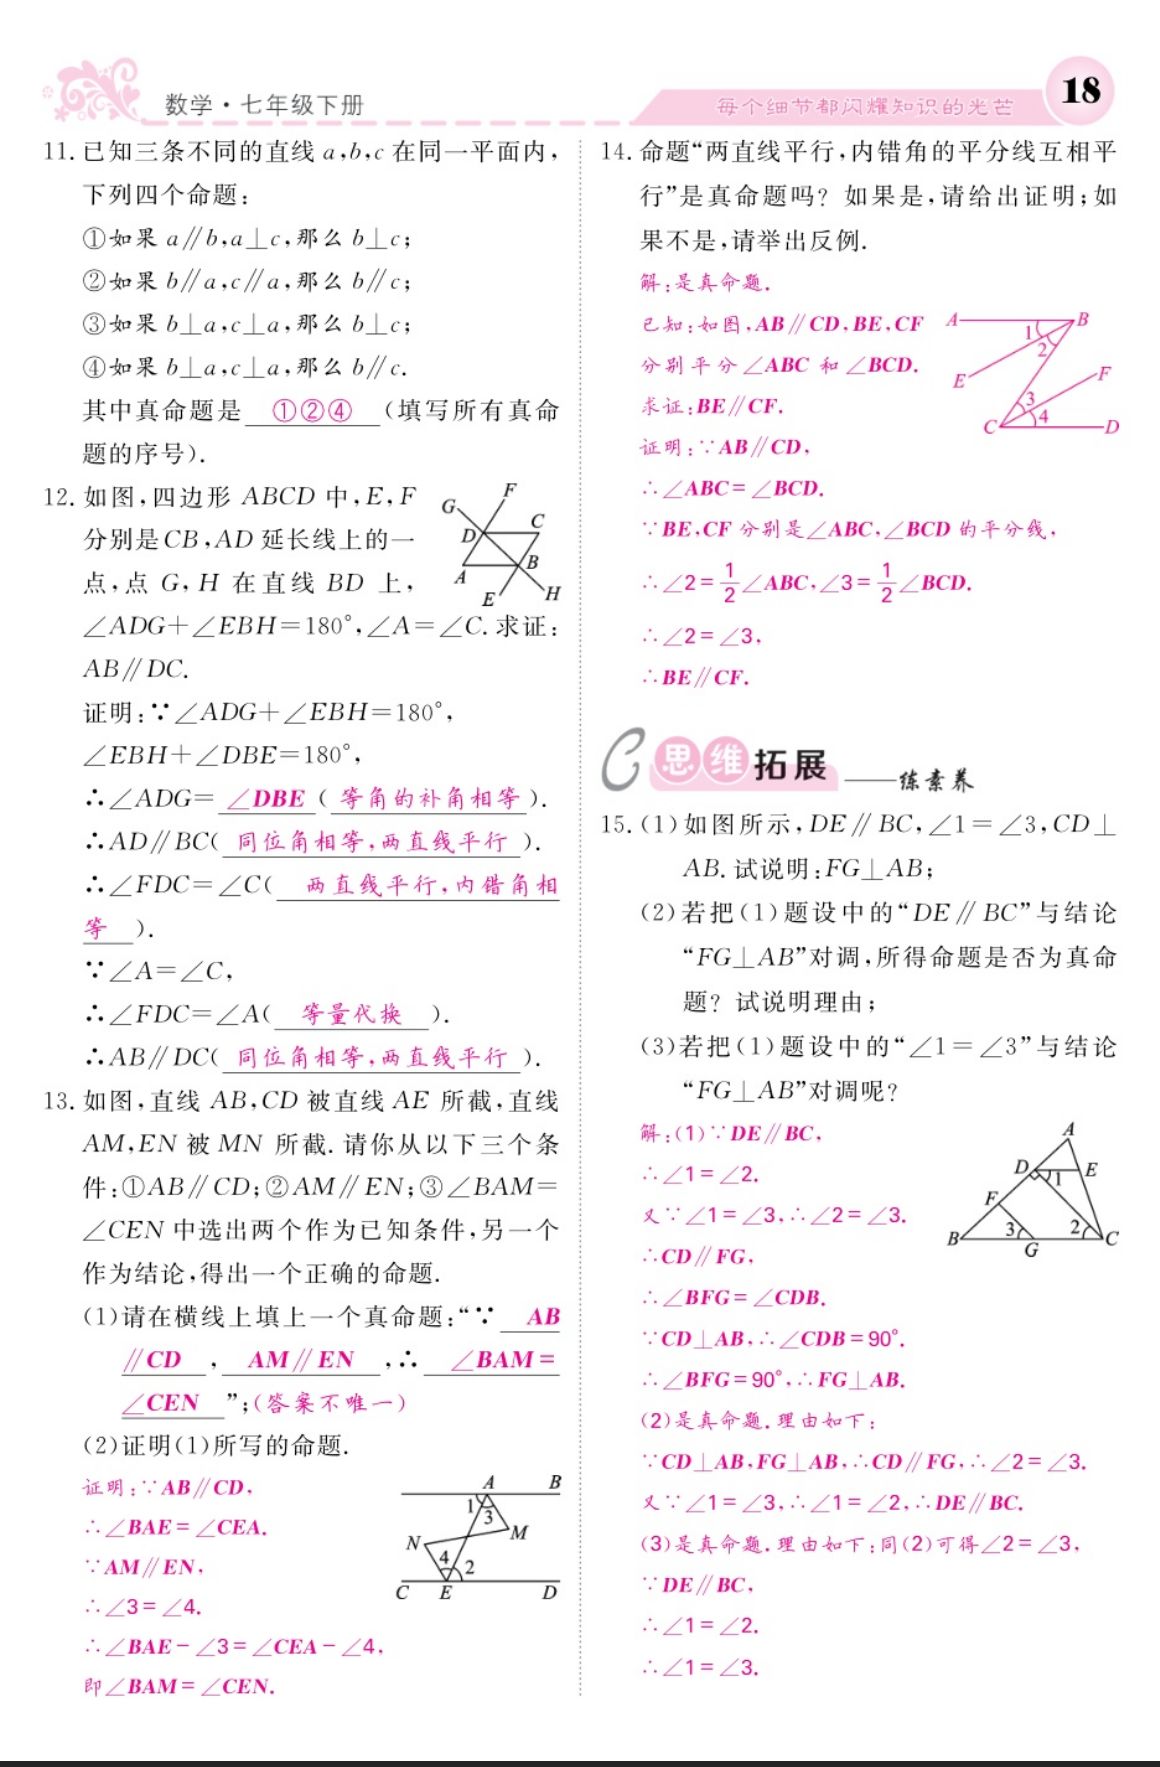 数学·七年级下册
每个细节都闪耀知识的光芒
18
11. 已知三条不同的直线 a,b,c 在同一平面内,
下列四个命题:
①如果 a∥b,a⊥c,那么 b⊥c;
②如果 b∥a,c∥a,那么 b∥c;
③如果 b⊥a,c⊥a,那么 b⊥c;
④如果 b⊥a,c⊥a,那么 b∥c.
其中真命题是 ①②④ (填写所有真命
题的序号).
12. 如图,四边形 ABCD 中,E,F
分别是CB,AD 延长线上的一
点,点 G,H 在直线 BD 上,
∠ADG+∠EBH=180°,∠A=∠C.求证:
AB∥DC.
G F D C A B E H
证明:∵∠ADG+∠EBH=180°,
∠EBH+∠DBE=180°,
∴∠ADG= ∠DBE ( 等角的补角相等 ).
∴AD∥BC( 同位角相等,两直线平行 ).
∴∠FDC=∠C( 两直线平行,内错角相
等 ).
∵∠A=∠C,
∴∠FDC=∠A( 等量代换 ).
∴AB∥DC( 同位角相等,两直线平行 ).
13. 如图,直线 AB,CD 被直线 AE 所截,直线
AM,EN 被 MN 所截.请你从以下三个条
件:①AB∥CD;②AM∥EN;③∠BAM=
∠CEN 中选出两个作为已知条件,另一个
作为结论,得出一个正确的命题.
(1)请在横线上填上一个真命题:“∵ AB
∥CD , AM∥EN ,∴ ∠BAM=
∠CEN ”;(答案不唯一)
(2)证明(1)所写的命题.
证明:∵AB∥CD,
∴∠BAE=∠CEA.
∵AM∥EN,
∴∠3=∠4.
∴∠BAE-∠3=∠CEA-∠4,
即∠BAM=∠CEN.
A B 1 3 M N 4 2 C E D
14. 命题“两直线平行,内错角的平分线互相平
行”是真命题吗? 如果是,请给出证明;如
果不是,请举出反例.
解:是真命题.
已知:如图,AB∥CD,BE,CF
分别平分∠ABC 和∠BCD.
求证:BE∥CF.
证明:∵AB∥CD,
∴∠ABC=∠BCD.
∵BE,CF 分别是∠ABC,∠BCD 的平分线,
∴∠2=1/2∠ABC,∠3=1/2∠BCD.
∴∠2=∠3,
∴BE∥CF.
A B 1 2 E F 3 4 C D
C 思维拓展 ——练素养
15. (1)如图所示,DE∥BC,∠1=∠3,CD⊥
AB.试说明:FG⊥AB;
(2)若把(1)题设中的“DE∥BC”与结论
“FG⊥AB”对调,所得命题是否为真命
题? 试说明理由;
(3)若把(1)题设中的“∠1=∠3”与结论
“FG⊥AB”对调呢?
解:(1)∵DE∥BC,
∴∠1=∠2.
又∵∠1=∠3,∴∠2=∠3.
∴CD∥FG,
∴∠BFG=∠CDB.
∵CD⊥AB,∴∠CDB=90°.
∴∠BFG=90°,∴FG⊥AB.
(2)是真命题.理由如下:
∵CD⊥AB,FG⊥AB,∴CD∥FG,∴∠2=∠3.
又∵∠1=∠3,∴∠1=∠2,∴DE∥BC.
(3)是真命题.理由如下:同(2)可得∠2=∠3,
∵DE∥BC,
∴∠1=∠2.
∴∠1=∠3.
A D E 1 F B 3 G 2 C